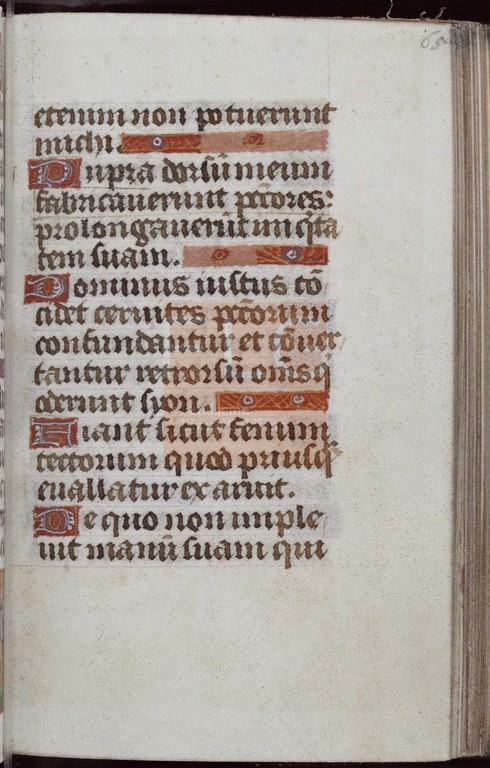 65
etenim non potuerunt
michi.
Supra dorsū meum
fabricauerunt pccōres:
prolongauerūt iniqta
tem suam.
Dominus iustus cō
cidet ceruites pccōrum
confundantur et cōuer
tantur retrorsū om̄s q̄
oderunt syon.
Fiant sicut fenum
tectorum quod priusq̄
euallatur exaruit.
De quo non imple
uit manū suam qui